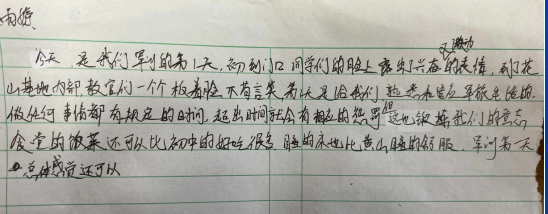 雨婷
又激动
今天是我们军训的第1天,初到门口同学们的脸上露出了兴奋的表情,到了花
山基地内部教官们一个个板着脸不苟言笑,第1天是给我们熟悉和适应军旅生活的.
做任何事情都有规定的时间,超出时间就会有相应的惩罚但这也锻炼我们的意志
食堂的饭菜还可以比初中的好吃很多 睡的床也比黄山睡的舒服.军训第一天
总体感觉还可以